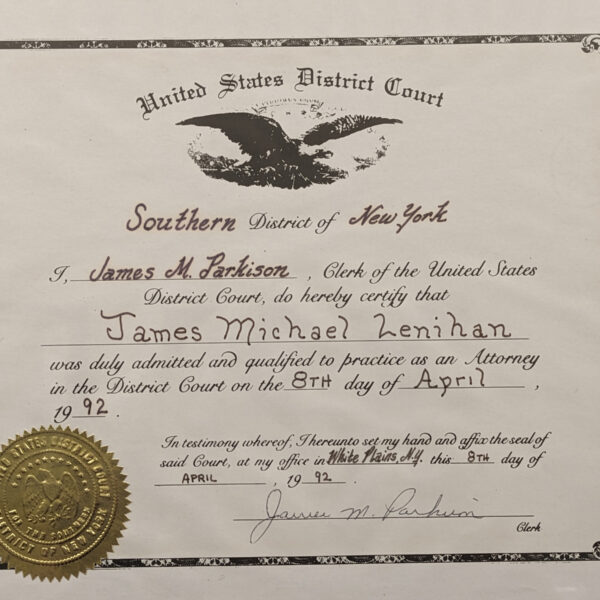 United States District Court
Southern District of New York
I, James M. Parkison, Clerk of the United States
District Court, do hereby certify that
James Michael Lenihan
was duly admitted and qualified to practice as an Attorney
in the District Court on the 8TH day of April,
19 92.
In testimony whereof, I hereunto set my hand and affix the seal of
said Court, at my office in White Plains, N.Y. this 8TH day of
APRIL, 19 92.
James M. Parkison
Clerk
UNITED STATES DISTRICT COURT
FOR THE SOUTHERN
DISTRICT OF NEW YORK